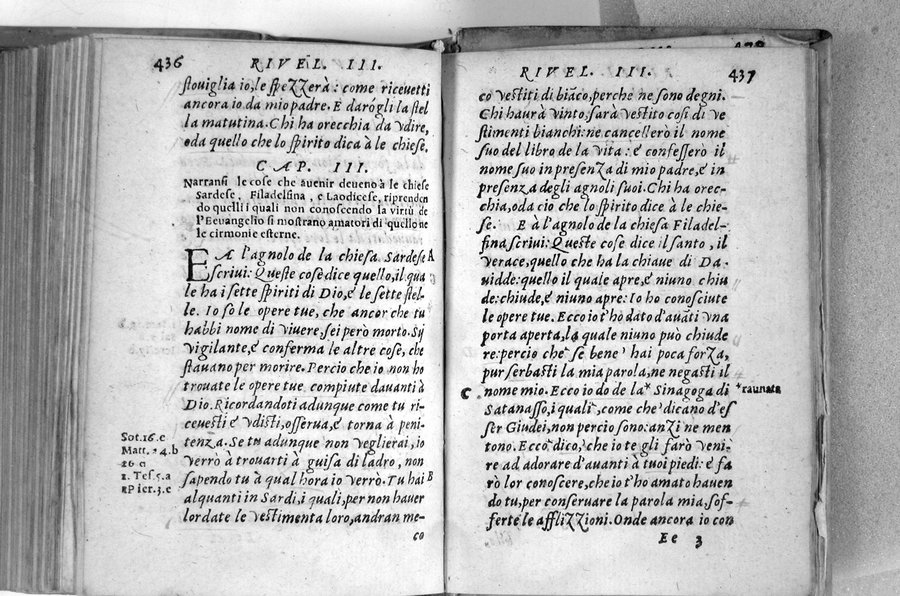 436 RIVEL. III.
stoviglia io, le spezzerà: come ricevetti
ancora io da mio padre. E darógli la stel
la matutina. Chi ha orecchia da vdire,
oda quello che lo spirito dica à le chiese.
CAP. III.
Narransi le cose che auenir deueno à le chiese
Sardese, Filadelfina, e Laodicese, riprenden
do quelli i quali non conoscendo la virtù de
l'Eeuangelio si mostrano amatori di quello ne
le cirmonie esterne.
E A l'agnolo de la chiesa Sardese A
scriui: Queste cose dice quello, il qua
le ha i sette spiriti di Dio, é le sette stel
le. Io so le opere tue, che ancor che tu
habbi nome di viuere, sei però morto. Sij
vigilante, é conferma le altre cose, che
stauano per morire. Percio che io non ho
trouate le opere tue compiute dauanti à
Dio. Ricordandoti adunque come tu ri-
ceuesti é vdisti, osserua, é torna à peni-
tenza. Se tu adunque non veglierai, io
verrò à trouarti à guisa di ladro, non
sapendo tu à qual hora io verrò. Tu hai B
alquanti in Sardi, i quali, per non hauer
lordate le vestimenta loro, andran me-
co
Sot. 16. c
Matt. 24. b
1. Tes. 5. a
2 Pier. 3. c
RIVEL. III. 437
co vestiti di biãco, perche ne sono degni.
Chi haurà vinto, sarà vestito cosi di ve
stimenti bianchi: ne cancellerò il nome
suo del libro de la vita: é confesserò il
nome suo in presenza di mio padre, é in
presenza degli agnoli suoi. Chi ha orec-
chia, oda cio che lo spirito dice à le chie-
se. E à l'agnolo de la chiesa Filadel-
fina scriui: Queste cose dice il santo, il
verace, quello che ha la chiaue di Da-
uidde: quello il quale apre, é niuno chiu
de: chiude, é niuno apre: Io ho conosciute
le opere tue. Ecco io t'hò dato d'auãti vna
porta aperta, la quale niuno può chiude
re: percio che se bene hai poca forza,
pur serbasti la mia parola, ne negasti il
C nome mio. Ecco io do de la* Sinagoga di *raunata
Satanasso, i quali, come che dicano d'es
ser Giudei, non percio sono: anzi ne men
tono. Ecco dico, che io te gli farò veni-
re ad adorare d'auanti à tuoi piedi: é fa
rò lor conoscere, che io t'ho amato hauen
do tu, per conseruare la parola mia, sof-
ferte le afflizzioni. Onde ancora io con
Ee 3